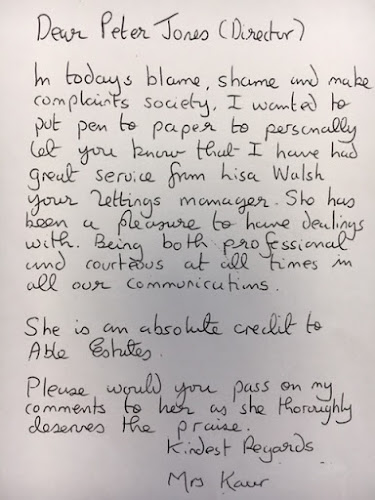 Dear Peter Jones (Director)
In todays blame, shame and make
complaints society. I wanted to
put pen to paper to personally
let you know that I have had
great service from Lisa Walsh
your lettings manager. She has
been a pleasure to have dealings
with. Being both professional
and courteous at all times in
all our communications.
She is an absolute credit to
Able Estates.
Please would you pass on my
comments to her as she thoroughly
deserves the praise.
Kindest Regards
Mrs Kaur